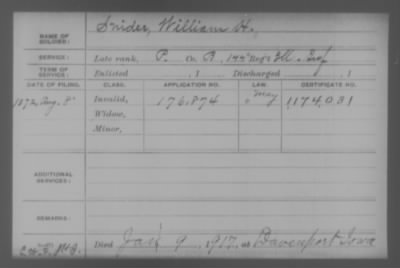 NAME OF SOLDIER: Snider, William H.,
SERVICE: Late rank, P. Co. B, 144" Reg't Ill. Inf
TERM OF SERVICE: Enlisted , 1 Discharged , 1
DATE OF FILING. CLASS. APPLICATION NO. LAW. CERTIFICATE NO.
1872, Aug. 8 Invalid, 176.874 May 1,174,031
Widow,
Minor,
ADDITIONAL SERVICES:
REMARKS:
Died Jan 9, 1917, at Davenport Iowa